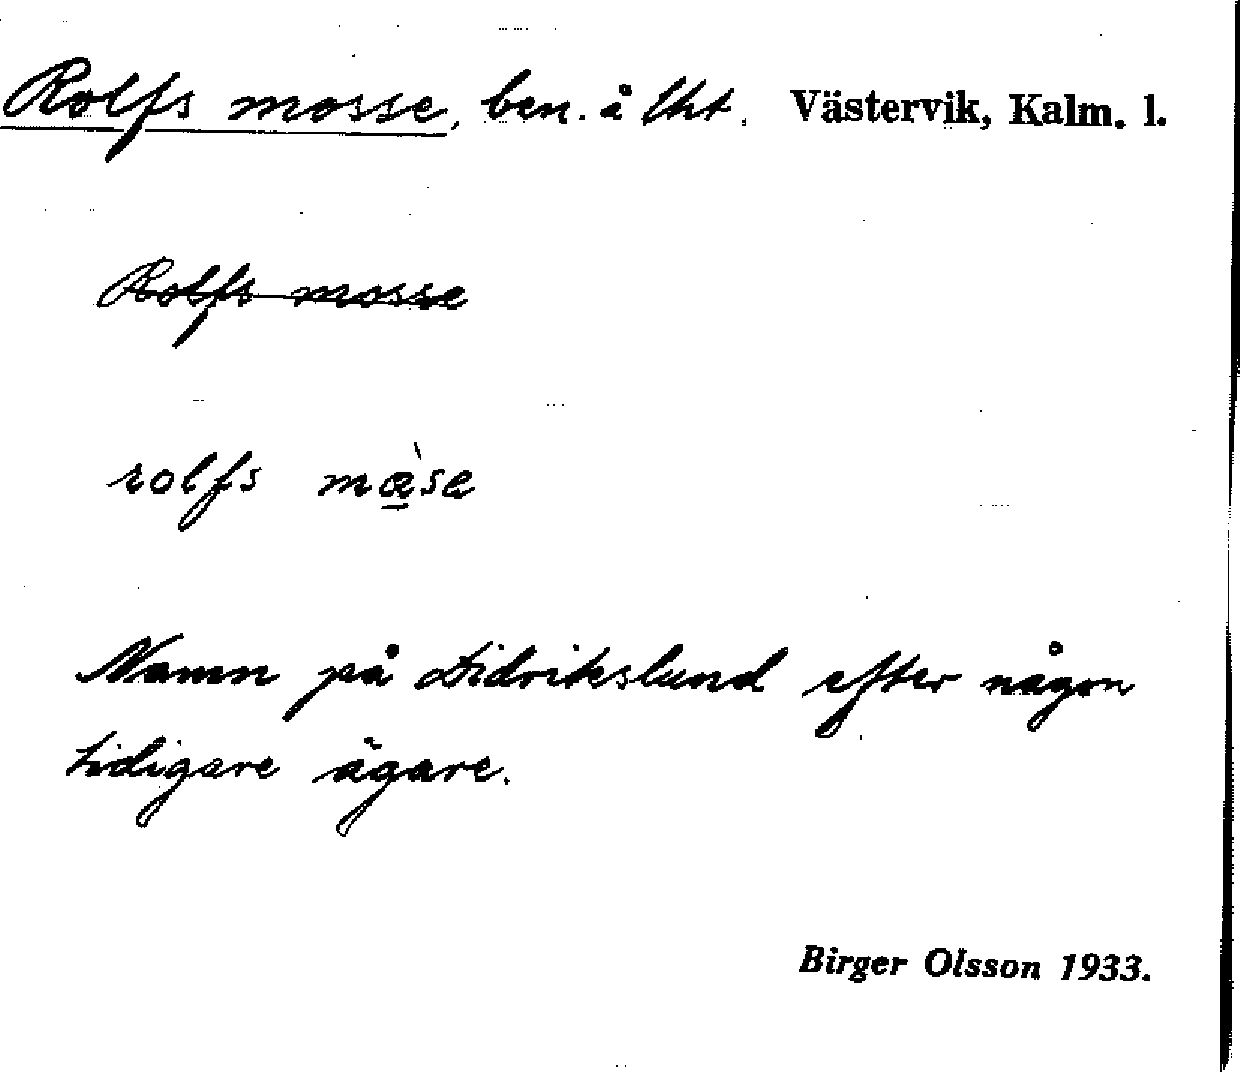 Rolfs mosse, ben. å lht. Västervik, Kalm. l.
Rolfs mosse
rolfs
Namn på Didrikslund efter någon
tidigare ägare.
Birger Olsson 1933.